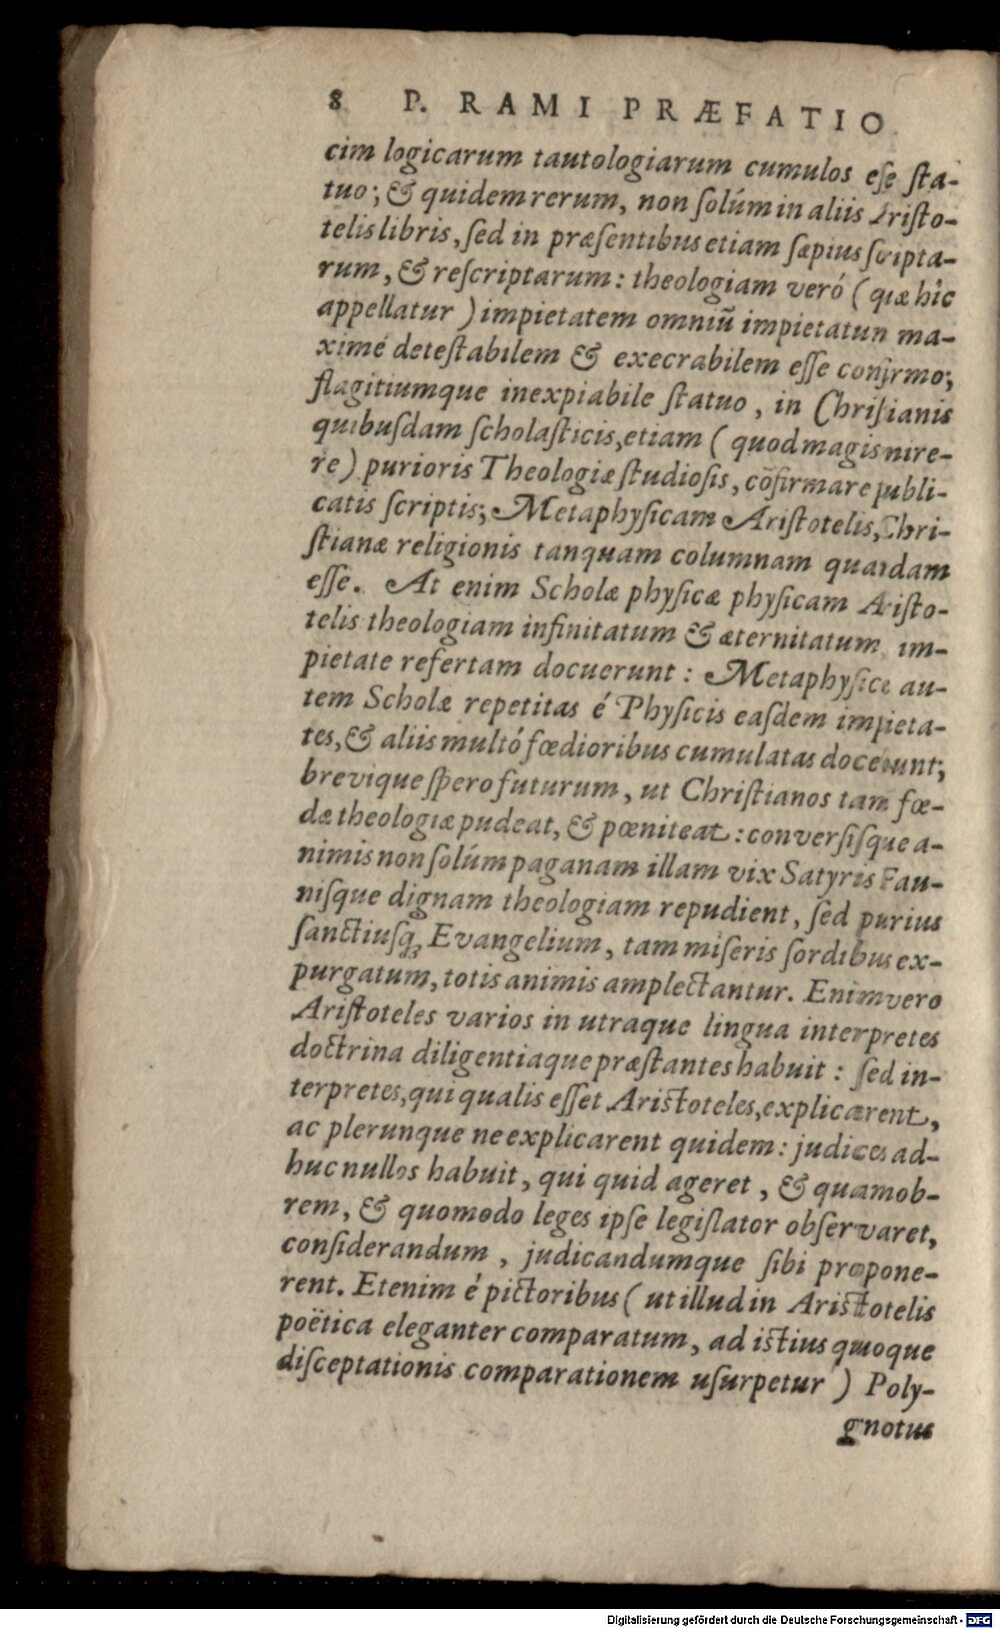 8 P. RAMI PRÆFATIO
cim logicarum tautologiarum cumulos eſe ſta-
tuo; & quidem rerum, non ſolúm in aliis Ariſto-
telis libris, ſed in præſentibus etiam ſæpius ſcripta-
rum, & reſcriptarum: theologiam veró (quæ hîc
appellatur) impietatem omniũ impietatun ma-
ximé deteſtabilem & execrabilem eſſe confirmo;
flagitiumque inexpiabile ſtatuo, in Chriſtianis
quibuſdam ſcholaſticis, etiam (quod magis mire-
re) purioris Theologiæ ſtudioſis, cõfirmare publi-
catis ſcriptis; Metaphyſicam Ariſtotelis, Chri-
ſtianæ religionis tanquam columnam quandam
eſſe. At enim Scholæ phyſicæ phyſicam Ariſto-
telis theologiam infinitatum & æternitatum im-
pietate refertam docuerunt: Metaphyſicæ au-
tem Scholæ repetitas é Phyſicis eaſdem impieta-
tes, & aliis multó fœdioribus cumulatas docebunt;
brevique ſpero futurum, ut Chriſtianos tam fœ-
dæ theologiæ pudeat, & pœniteat: converſiſque a-
nimis non ſolúm paganam illam vix Satyris Fau-
niſque dignam theologiam repudient, ſed purius
ſanctiuſq; Evangelium, tam miſeris ſordibus ex-
purgatum, totis animis amplectantur. Enimvero
Ariſtoteles varios in utraque lingua interpretes
doctrina diligentiaque præſtantes habuit: ſed in-
terpretes, qui qualis eſſet Ariſtoteles, explicarent,
ac plerunque ne explicarent quidem: judices ad-
huc nullos habuit, qui quid ageret, & quamob-
rem, & quomodo leges ipſe legiſlator obſervaret,
conſiderandum, judicandumque ſibi propone-
rent. Etenim é pictoribus (ut illud in Ariſtotelis
poëtica eleganter comparatum, ad iſtius quoque
diſceptationis comparationem uſurpetur) Poly-
gnotus
Digitalisierung gefördert durch die Deutsche Forschungsgemeinschaft - DFG